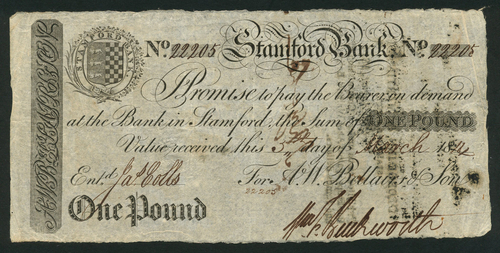 STAMFORD BANK
No. 22205 Stamford Bank No. 22205
I Promise to pay the Bearer on demand
at the Bank in Stamford, the Sum of ONE POUND
Value received this 3 day of March 1814
Ent.d Jas Eolls For A.W. Bellairs & Son
22205
One Pound